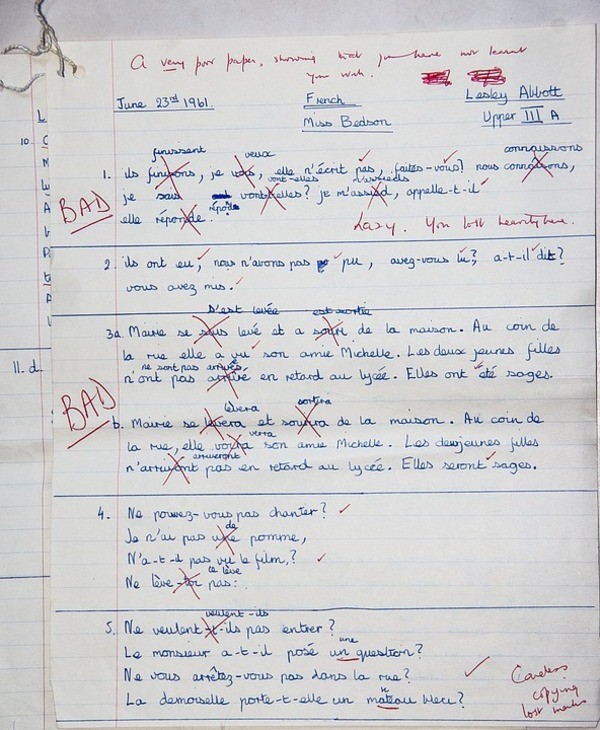 A very poor paper, showing that you have not learnt
your work.
June 23rd 1961. French Lesley Abbott
Miss Bedson Upper III A
finissent veux connaissons
1. ils finissons, je vous, elle n'écrit pas, faites-vous? nous connaisons,
vont-elles m'assieds
BAD je sais vont-elles? je m'assied, appelle-t-il
elle réponde. répond Lazy. You lost heavily here.
2. ils ont eu, nous n'avons pas pu, avez-vous lu? a-t-il dit?
vous avez mis.
s'est levée est sortie
3a. Marie se suis levé et a sorti de la maison. Au coin de
la rue elle a vu son amie Michelle. Les deux jeunes filles
ne sont pas arrivées
n'ont pas arrivé en retard au lycée. Elles ont été sages.
BAD
lèvera sortira
b. Marie se levera et de la maison. Au coin de
verra
la rue, elle voira son amie Michelle. Les deux jeunes filles
arriveront
n'arrivont pas en retard au lycée. Elles seront sages.
4. Ne pouvez-vous pas chanter?
de
Je n'ai pas une pomme,
N'a-t-il pas vu le film?
te lève
Ne lève-toi pas.
veulent-ils
5. Ne veulent-t-ils pas entrer?
une
Le monsieur a-t-il posé un question?
Ne vous arrêtez-vous pas dans la rue?
La demoiselle porte-t-elle un mateau bleu?
Careless
copying
lost marks
10
11. d.